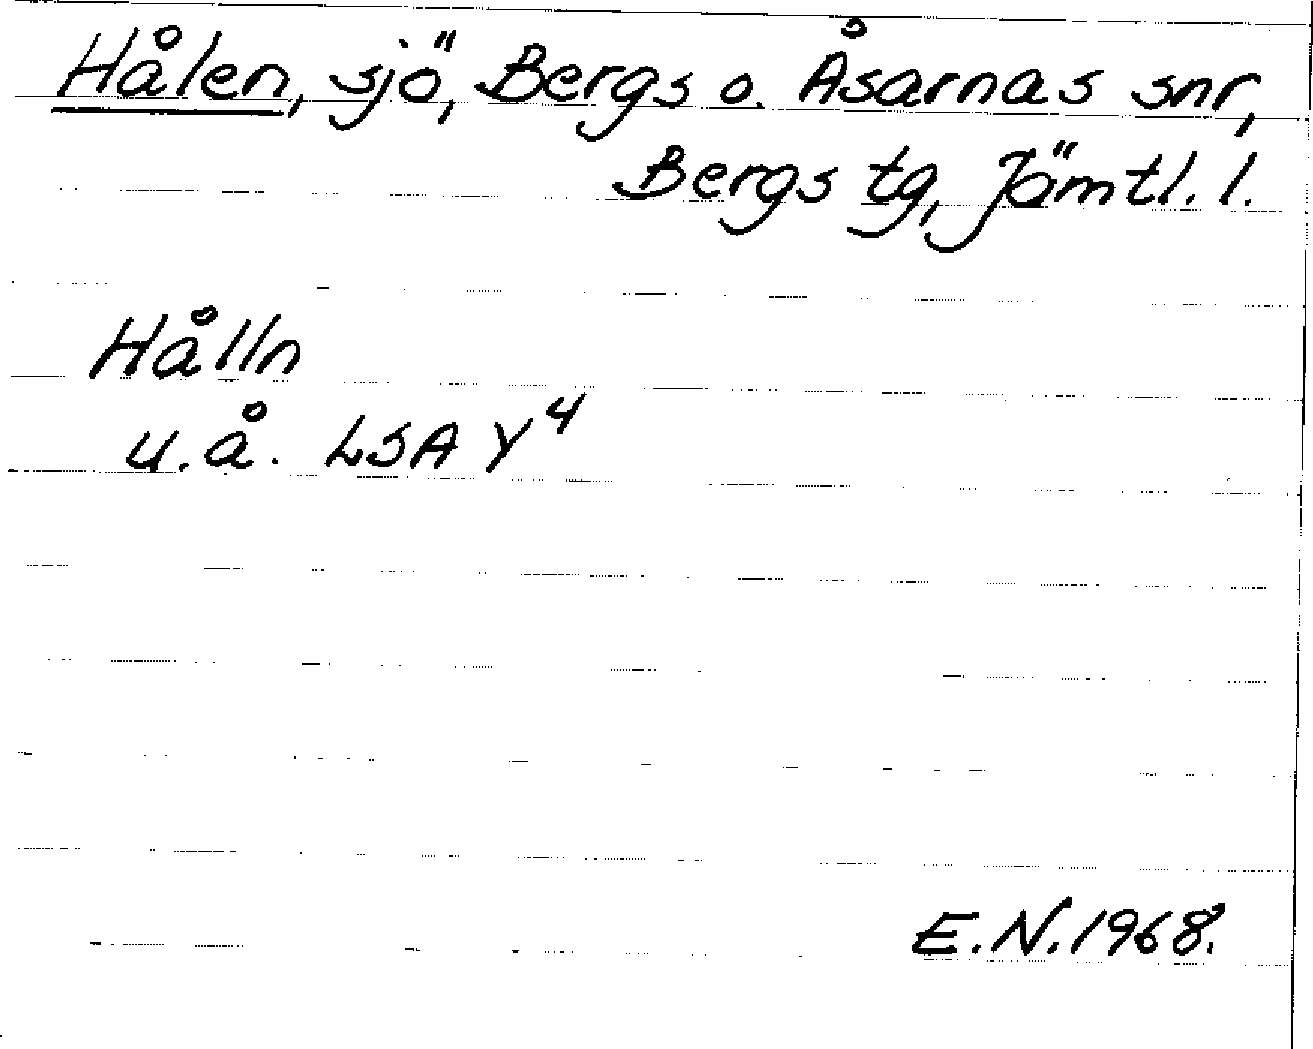 Hålen, sjö, Bergs o. Åsarnas snr,
Bergs tg, Jämtl. l.
Hålln
u.å. LSA Y⁴
E.N. 1968.